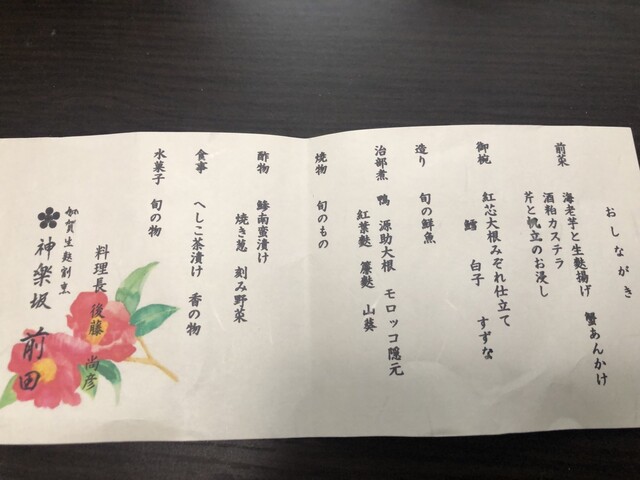 おしながき
前菜 海老芋と生麩揚げ 蟹あんかけ
酒粕カステラ
芹と帆立のお浸し
御椀 紅芯大根みぞれ仕立て
鱈 白子 すずな
造り 旬の鮮魚
治部煮 鴨 源助大根 モロッコ隠元
紅葉麩 簾麩 山葵
焼物 旬のもの
酢物 鯵南蛮漬け
焼き葱 刻み野菜
食事 へしこ茶漬け 香の物
水菓子 旬の物
料理長 後藤 尚彦
加賀生麩割烹
神楽坂 前田